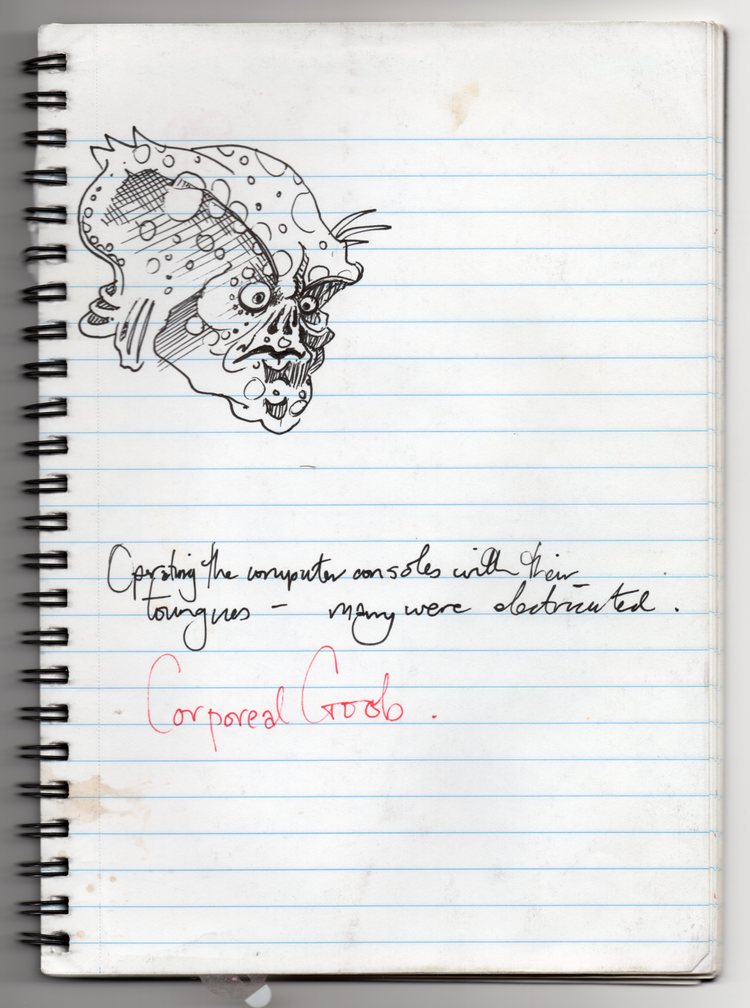 Operating the computer consoles with their
toungues - many were electricuted.
Corporeal Goob.